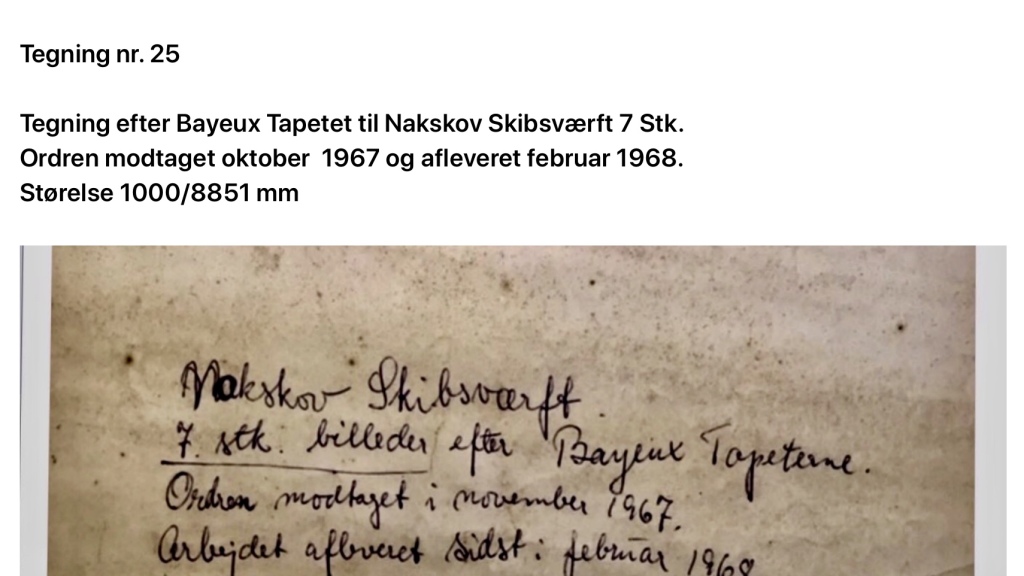 Tegning nr. 25
Tegning efter Bayeux Tapetet til Nakskov Skibsværft 7 Stk.
Ordren modtaget oktober 1967 og afleveret februar 1968.
Størelse 1000/8851 mm
Nakskov Skibsværft.
7. stk. billeder efter Bayeux Tapeterne.
Ordren modtaget i november 1967.
Arbejdet afleveret sidst i februar 1968